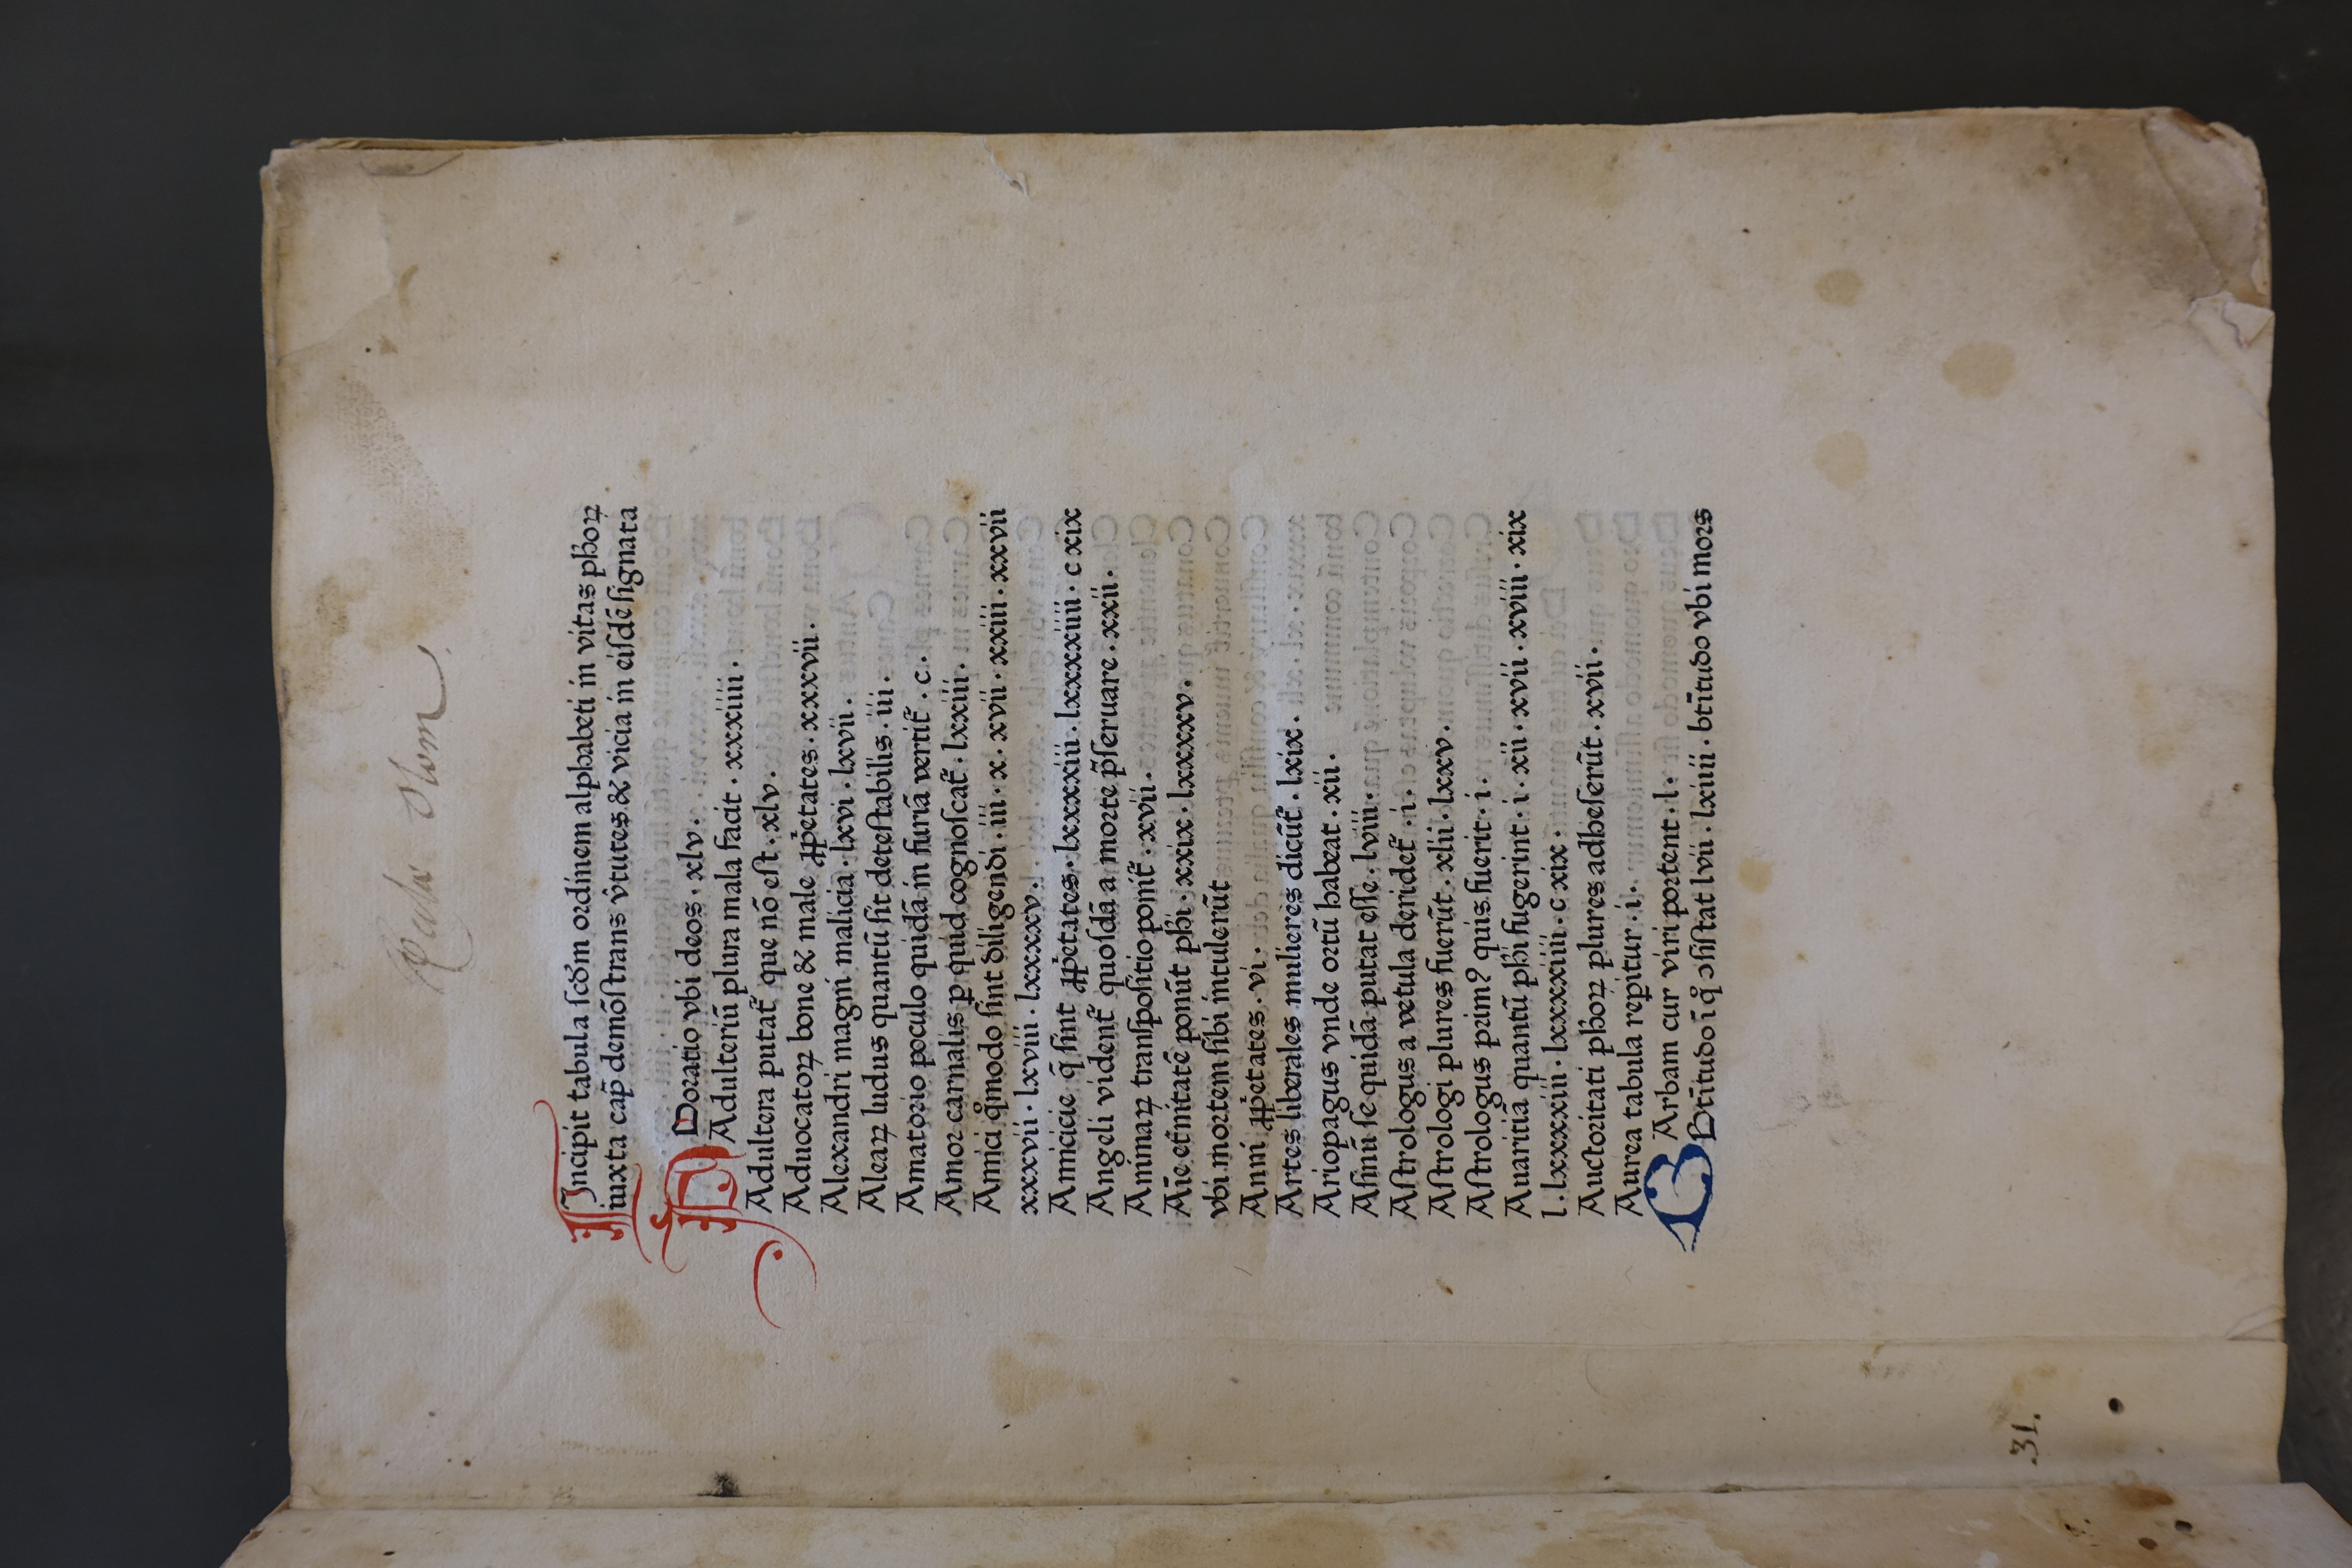 Incipit tabula ſcdm ordinem alphabeti in vitas phoꝝ
iuxta cap̄ demōſtrans v̂tutes & vicia in eiſdē ſignata
ADoratio vbi deos · xlv ·
Adulteriū plura mala facit · xxxiiii ·
Adultera putat᷑ que nō eſt · xlv ·
Aduocatoꝝ bone & male ꝓṗetates · xxxvii ·
Alexandri magni malicia · lxvi · lxvii ·
Aleaꝝ ludus quantū ſit deteſtabilis · iii ·
Amatorio poculo quidā in furiā vertit᷑ · c ·
Amor carnalis ꝑ quid cognoſcat᷑ · lxxiii ·
Amici qͦmodo ſint diligendi · iii · x · xvii · xxiii · xxvii
xxxvii · lxviii · lxxxxv ·
Amicicie q̄ ſint ꝓṗetates · lxxxxiii · lxxxxiiii · c xix
Angeli vident᷑ quoſdā a morte p̄ſeruare · xxii ·
Animaꝝ tranſpoſitio ponit᷑ · xvii ·
Aīe et̄nitatē ponūt phi · xxix · lxxxxv ·
vbi mortem ſibi intulerūt
Anni ꝓṗetates · vi ·
Artes liberales mulieres dicūt᷑ · lxix ·
Ariopagus vnde ortū habeat · xii ·
Aſinū ſe quidā putat eſſe · lviii ·
Aſtrologus a vetula deridet᷑ · i ·
Aſtrologi plures fuerūt · xlii · lxxv ·
Aſtrologus prim⁹ quis fuerit · i ·
Auaritiā quantū phi fugerint · i · xii · xvii · xviii · xix
l · lxxxxiii · lxxxxiiii · c xix ·
Auctoritati phoꝝ plures adheſerūt · xvii ·
Aurea tabula reꝑitur · i ·
BArbam cur viri portent · l ·
Bt̄itudo ī qͦ ꝯſiſtat lvii · lxiiii · bt̄itudo vbi mors
31.